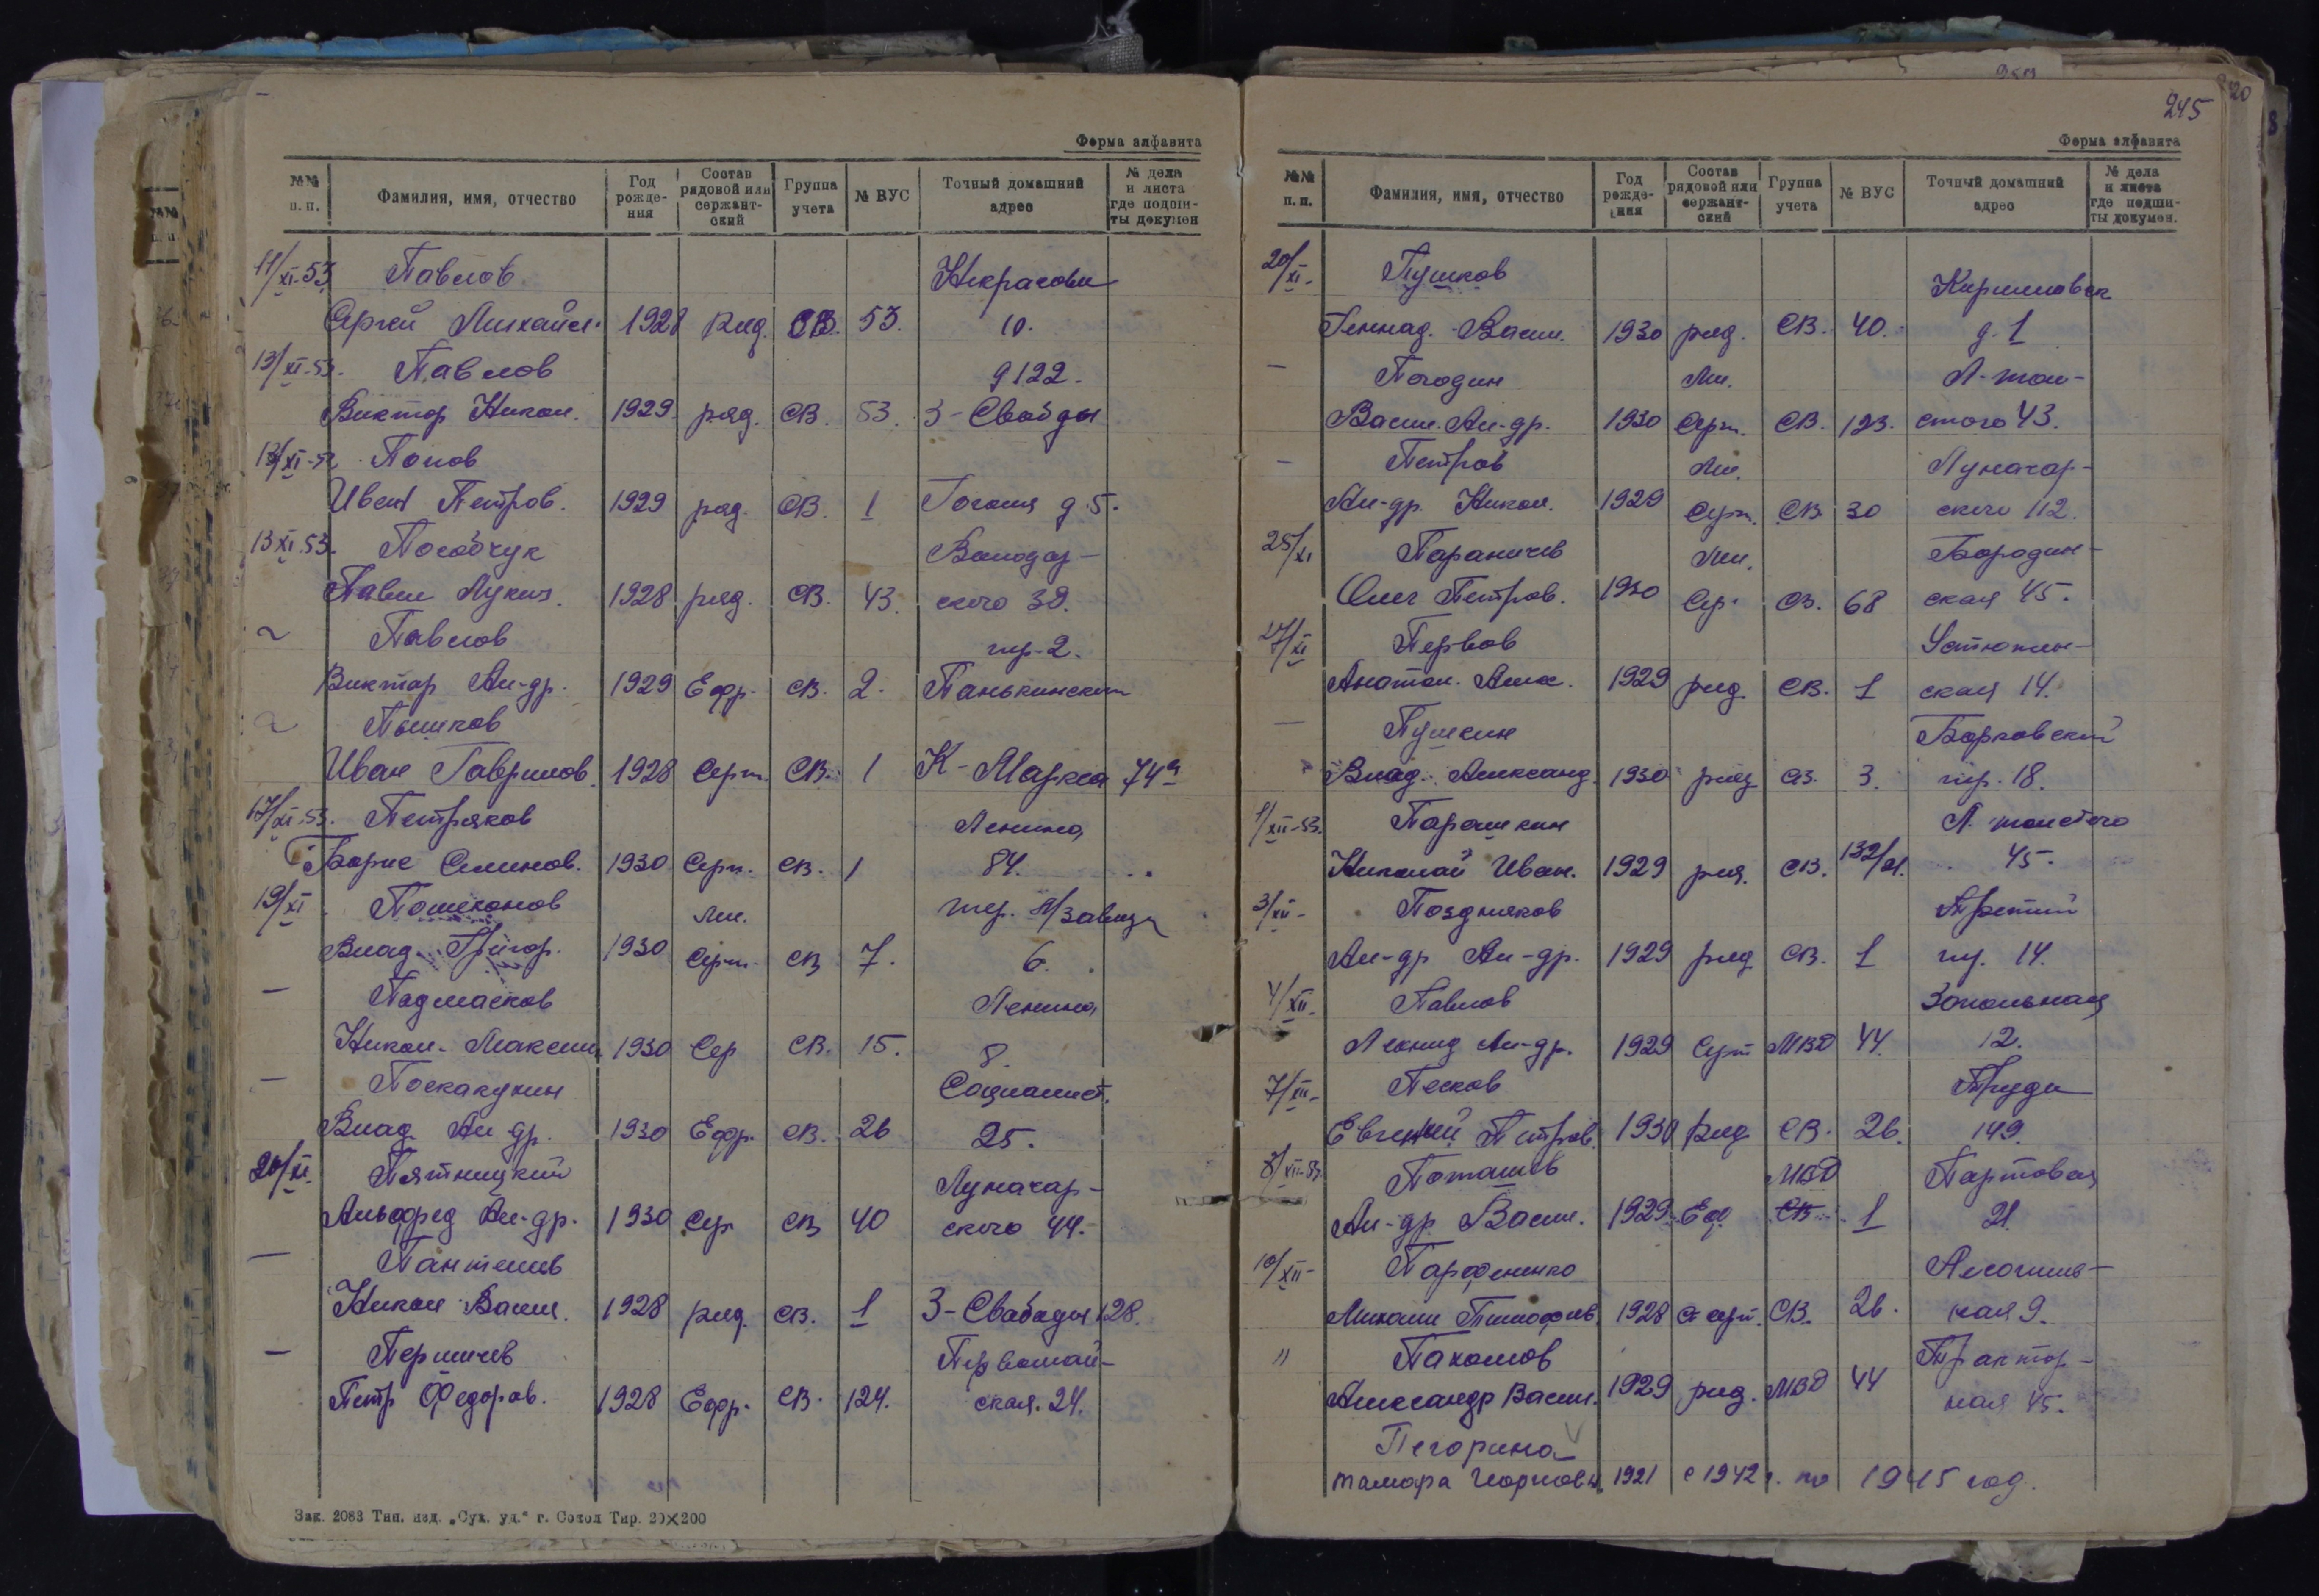 Форма алфавита
№№ п. п. Фамилия, имя, отчество Год рожде-ния Состав рядовой или сержант-ский Группа учета № ВУС Точный домашний адрес № дела и листа где подши-ты докумен
11/XI-53 Павлов Некрасова
Сергей Михайл. 1928 Ряд. СВ. 53. 10.
13/XI-53. Павлов д 122.
Виктор Никол. 1929 ряд. СВ. 53. 3-Свободы
Попов
Иван Петров. 1929 ряд. СВ. 1 Гоголя д.5.
13 XI.53. Пособчук Володар-
Павел Лукич. 1928 ряд. СВ. 43. ского 38.
~ Павлов пер-2.
Виктор Ал-др. 1929 Ефр. СВ. 2. Панькинский
~ Пышков
Иван Гаврилов. 1928 Серж. СВ. 1 К-Маркса 74а
17/XI-53. Петряков Ленина
Борис Семенов. 1930 Серж. СВ. 1 84.
19/XI Пошехонов Мл. тер. л/завода
Влад. Григор. 1930 Серж. СВ 7. 6.
— Подмасков Ленина
Никол. Максим. 1930 Сер СВ. 15. 8.
— Поскакухин Социалист.
Влад. Ал-др. 1930 Ефр. СВ. 26 25.
20/XI. Пятницкий Луначар-
Альфред Ал-др. 1930 Сер СВ 40 ского 44.
— Пантелев
Никол Васил. 1928 ряд. СВ. 1 3-Свободы 128.
— Першичев Первомай-
Петр Федоров. 1928 Ефр. СВ. 124. ская. 24.
Зак. 2083 Тип. изд. „Сух. уд." г. Сокол Тир. 20×200
245
Форма алфавита
№№ п. п. Фамилия, имя, отчество Год рожде-ния Состав рядовой или сержант-ский Группа учета № ВУС Точный домашний адрес № дела и листа где подши-ты докумен.
20/XI- Пушков Кирилловск
Геннад. Васил. 1930 ряд. СВ. 40. д. 1
— Погодин Мл. Л-тол-
Васил. Ал-др. 1930 Серж. СВ. 123. стого 43.
— Петров Мл. Луначар-
Ал-др. Никол. 1929 Серж. СВ 30 ского 112.
25/XI Параничев Мл. Бородин-
Олег Петров. 1930 Сер. СВ. 68 ская 45.
27/XI Первов Устюжен-
Анатол. Алек. 1929 ряд. СВ. 1 ская 14.
— Пушкин Борковский
Влад. Александ. 1930 ряд СВ. 3. пер. 18.
1/XII-53. Парашкин Л. толстого
Николай Иван. 1929 ряд. СВ. 45.
3/XII- Поздняков Третий
Ал-др Ал-др. 1929 ряд СВ. 1 пер. 14.
4/XII- Павлов
Леонид Ал-др. 1929 Серж МВД 44. 12.
7/XII- Песков Труда
Евгений Петров. 1930 Ряд СВ. 26. 149.
Поташев МВД Партовая
Ал-др Васил. 1929 Еф. СВ 1 21.
10/XII- Парфененко
Михаил Тимофев. 1928 Ст серж. СВ. 26. ная 9.
" Пахомов Трактор-
Александр Васил. 1929 ряд. МВД 44 ная 45.
Пегорина
Тамара 1921 с 1942 г. по 1945 год.